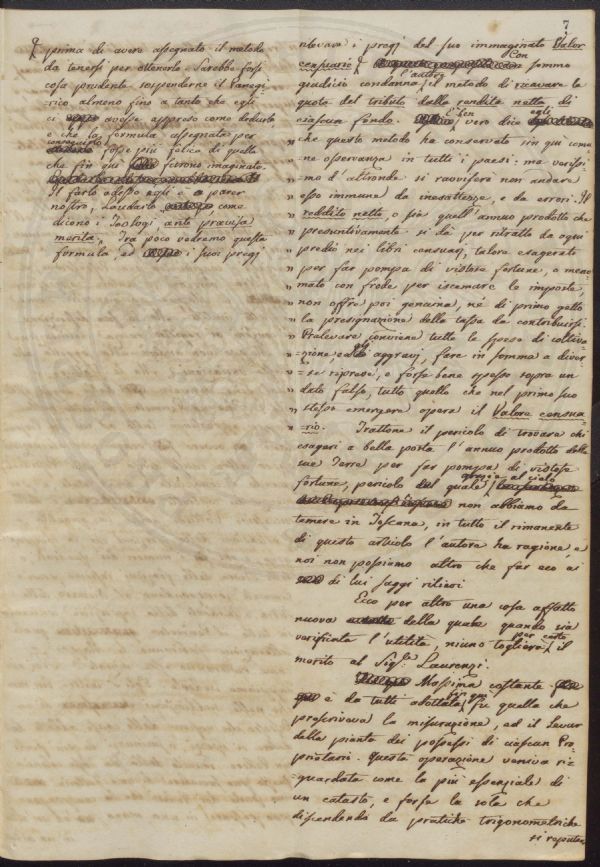 7
prima di avere assegnato il metodo
da tenersi per ottenerlo. Sarebbe forse
cosa prudente sospenderne il Panegi-
rico almeno fino a tanto che egli
ci avesse appreso come dedurlo
e che la formula assegnata per
conseguirlo
fosse più felice di quella
che fin qui si erano imaginate.
Il farlo adesso egli è a parer
nostro, Laudarlo come
dicono i Teologi ante praevisa
merita. Tra poco vedremo questa
formula, ed i suoi pregj
rilevare i pregj del suo immaginato Valor
censuario Con sommo
l'autore
giudizio condanna il metodo di ricavare la
quota del tributo dalla rendita netta di
ciascun fondo. È ben vero dice egli
che questo metodo ha conservato sin qui como-
„ ne osservanza in tutti i paesi: ma verissi-
„ mo d'altronde si ravvisera non andare
„ esso immune da inesattezze, e da errori. Il
„ reddito netto, o sia quell'annuo prodotto che
„ presuntivamente si dei per ritratto da ogni
„ predio nei libri censuarj, talora esagerati
„ per far pompa di vistose fortune, o meno-
„ mato con frode per iscemare le imposte,
„ non offre poi genuina, né di primo getto
„ la presignazione della tassa da contribuirsi.
„ Prelevare conviene tutte le spese di coltiva-
„ zione, e gli aggravj, fare in somma a diver-
„ se riprese, e forse bene spesso sopra un
„ dato falso, tutto quello che nel primo suo
„ stesso emergere opera il Valore censua-
„ rio. Trattone il pericolo di trovare chi
esageri a bella posta l'annuo prodotto delle
sue Terre per far pompa di vistose
fortune, pericolo del quale grazie al cielo
non abbiamo da
temere in Toscana, in tutto il rimanente
di questo articolo l'autore ha ragione, e
noi non possiamo altro che far eco ai
di lui saggi rilievi
Ecco per altro una cosa affatto
nuova della quale quando sia
verificata l'utilità, niuno toglierà per certo il
merito al Sig.r Laurenzi.
Massima costante
è da tutti adottata fin qui fu quella che
prescriveva la misurazione, ed il Levar
della pianta dei possessi di ciascun Pro-
prietario. Questa operazione veniva ri-
guardata come la più essenziale di
un catasto, e forse la sola che
dipendendo da pratiche trigonometriche
si reputa